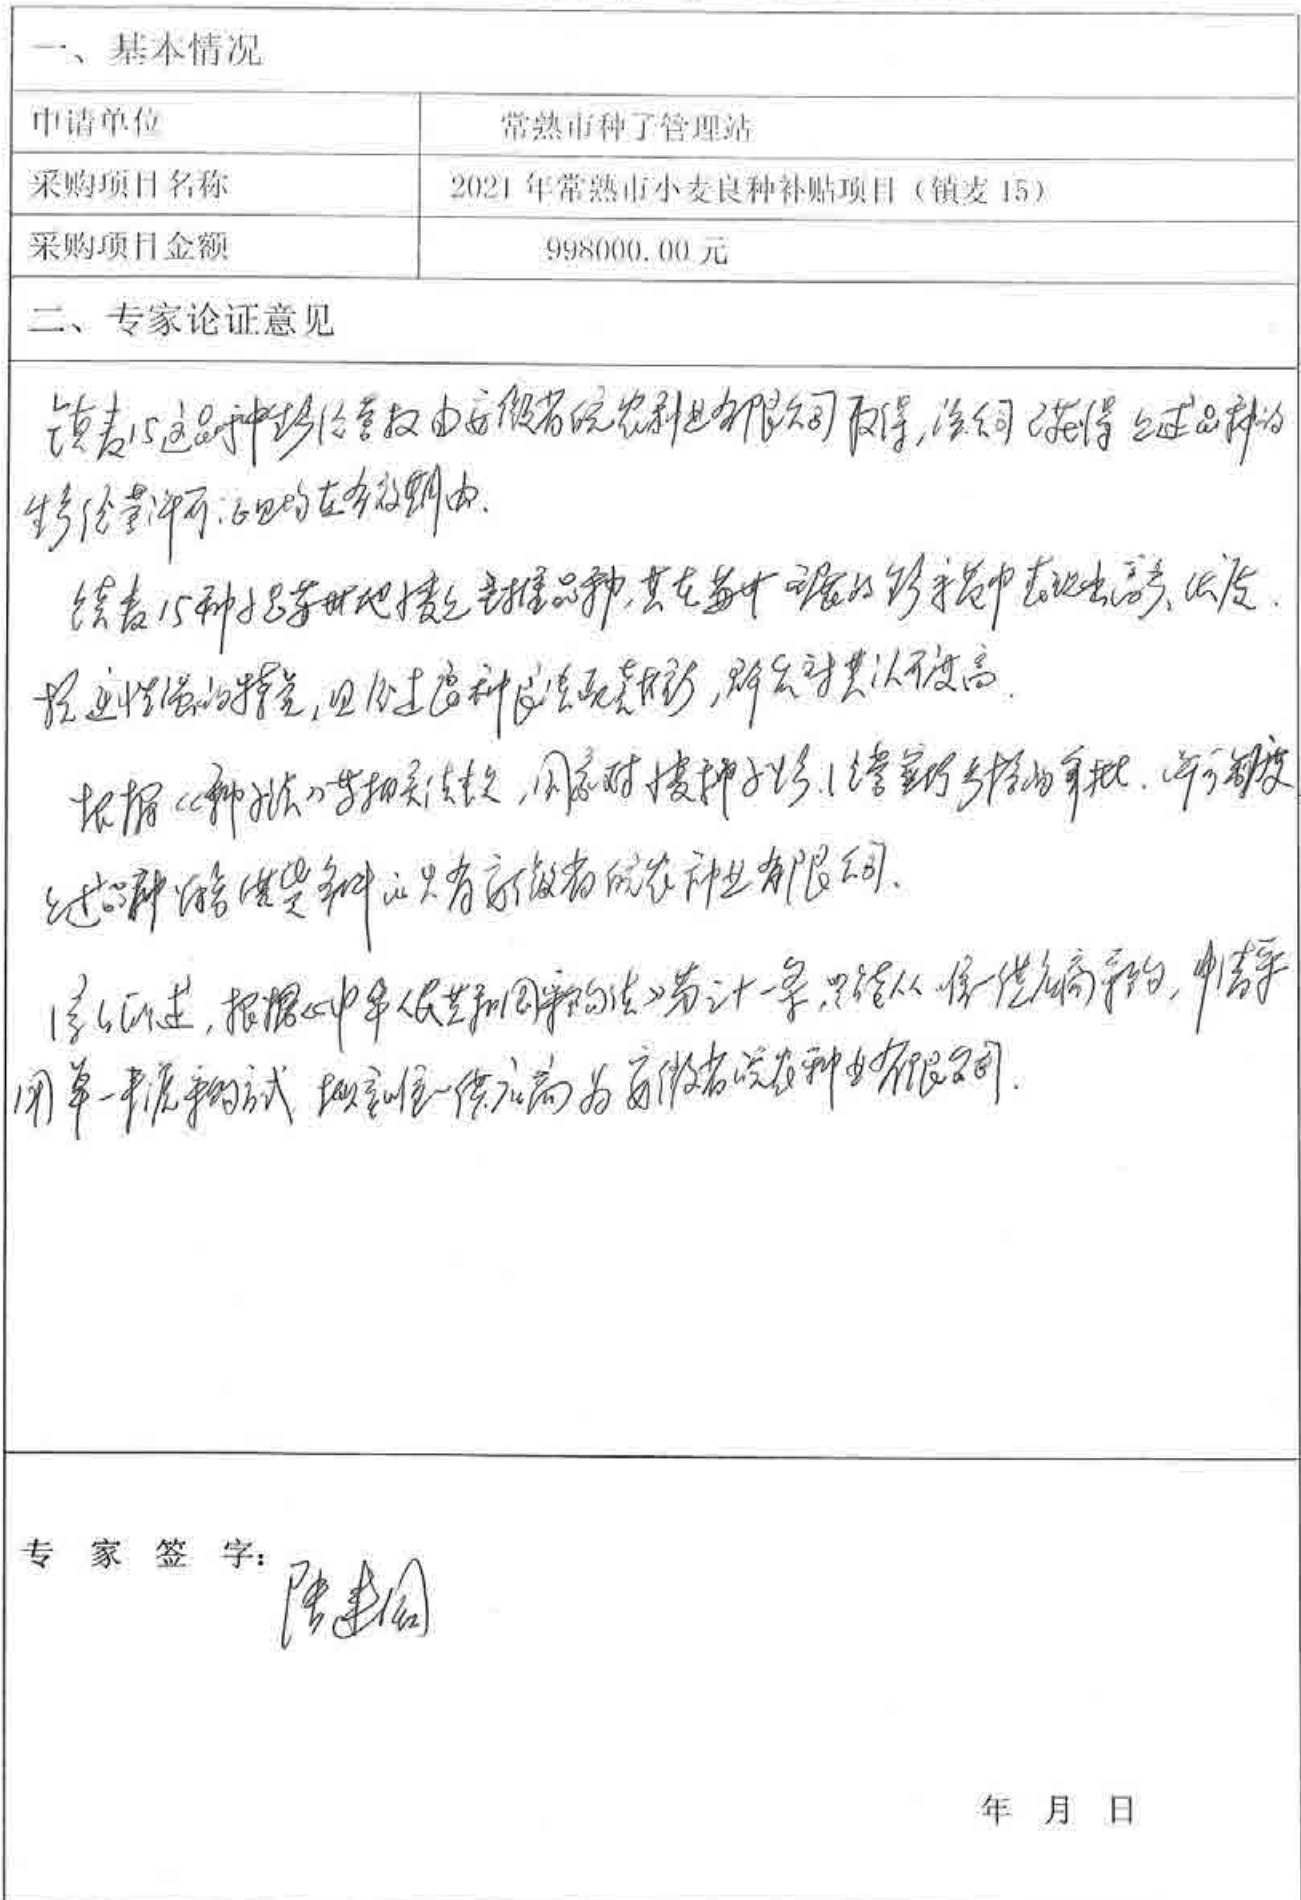 一、基本情况
申请单位 常熟市种子管理站
采购项目名称 2021 年常熟市小麦良种补贴项目（镇麦 15）
采购项目金额 998000.00 元
二、专家论证意见
镇麦15这品种生产经营权由安徽省皖农种业有限公司取得，该公司已获得上述品种的
生产经营许可证且均在有效期内.
镇麦15种子是苏州地区小麦主推品种，其在苏州地区的生产示范中表现出高产、优质、
抗逆性强的特点，且经过良种良法配套推广，群众对其认可度高.
根据《种子法》等相关法律，国家对小麦种子生产、经营实行严格的审批、许可制度
上述品种符合供货条件的只有安徽省皖农种业有限公司.
综上所述，根据《中华人民共和国采购法》第三十一条，只能从唯一供应商采购，申请采
用单一来源采购方式 拟定唯一供应商为安徽省皖农种业有限公司.
专 家 签 字：
年 月 日